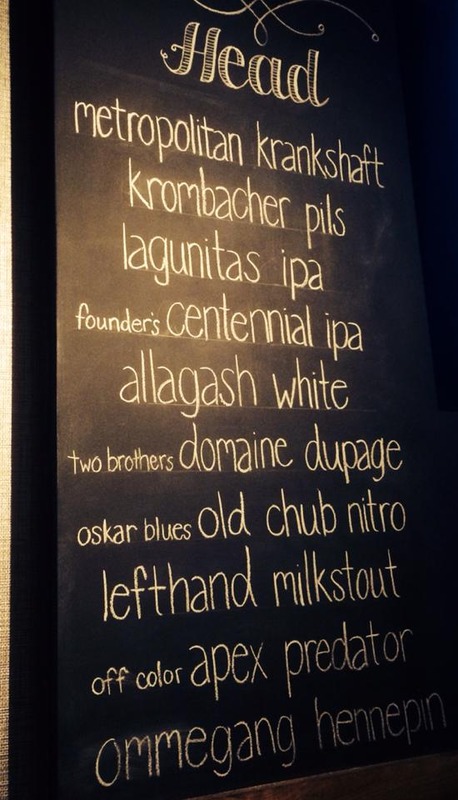 Head
metropolitan krankshaft
krombacher pils
lagunitas ipa
founder's centennial ipa
allagash white
two brothers domaine dupage
oskar blues old chub nitro
lefthand milkstout
off color apex predator
ommegang hennepin